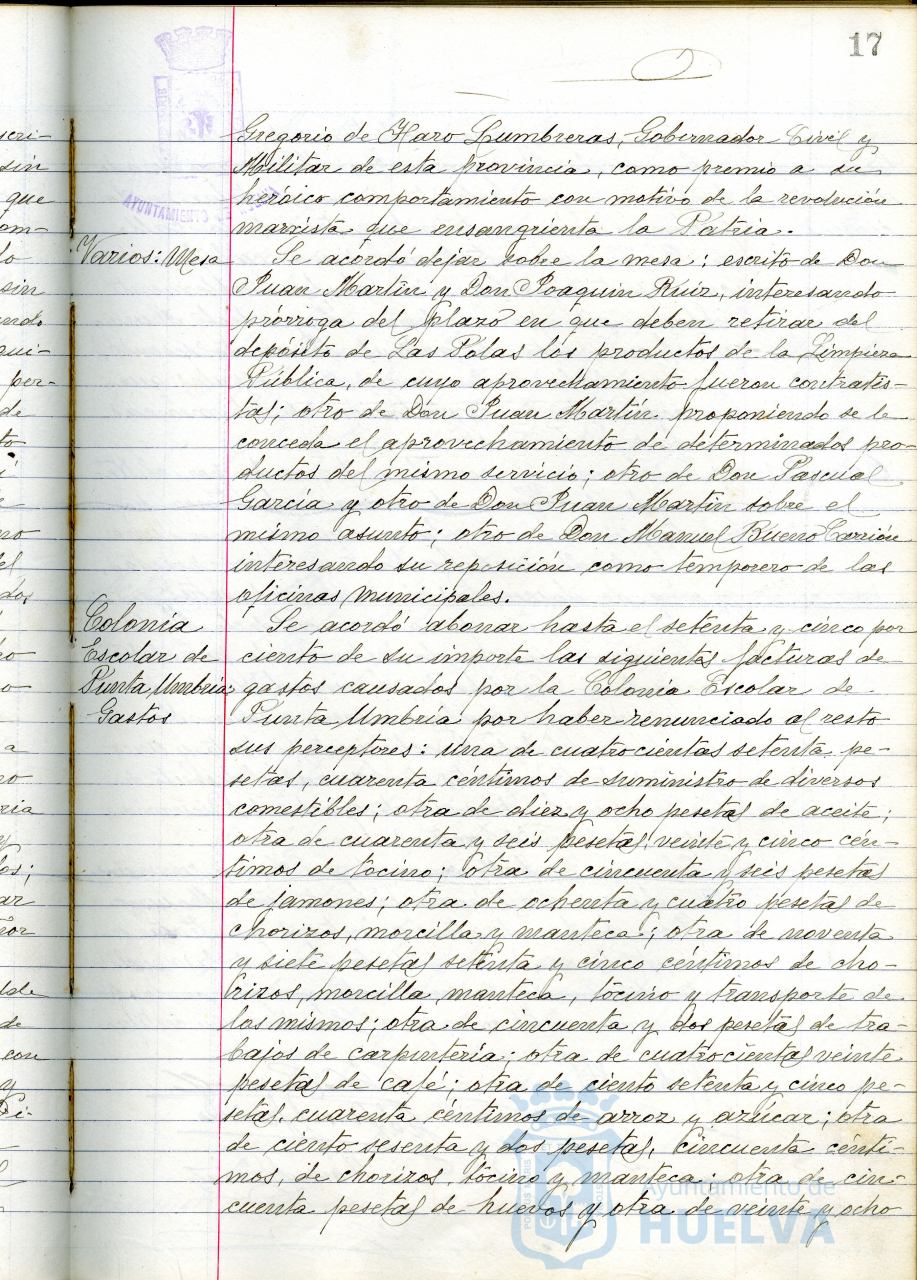 17
Gregorio de Haro Lumbreras, Gobernador Civil y
Militar de esta provincia, como premio a su
heróico comportamiento con motivo de la revolución
marxista que ensangrienta la Patria.
Varios: Mesa
Se acordó dejar sobre la mesa: escrito de Don
Juan Martín y Don Joaquin Ruiz, interesando
prórroga del plazo en que deben retirar del
depósito de Las Polas los productos de la Limpieza
Pública, de cuyo aprovechamiento fueron contratis-
tas; otro de Don Juan Martín proponiendo se le
conceda el aprovechamiento de determinados pro-
ductos del mismo servicio; otro de Don Pascual
García y otro de Don Juan Martín sobre el
mismo asunto; otro de Don Manuel Bueno Carrión
interesando su reposición como temporero de las
oficinas municipales.
Colonia
Escolar de
Punta Umbria
Gastos
Se acordó abonar hasta el setenta y cinco por
ciento de su importe las siguientes facturas de
gastos causados por la Colonia Escolar de
Punta Umbría por haber renunciado al resto
sus perceptores: una de cuatrocientas setenta pe-
setas, cuarenta céntimos de suministro de diversos
comestibles; otra de diez y ocho pesetas de aceite;
otra de cuarenta y seis pesetas veinte y cinco cén-
timos de tocino; otra de cincuenta y seis pesetas
de jamones; otra de ochenta y cuatro pesetas de
chorizos, morcilla y manteca; otra de noventa
y siete pesetas setenta y cinco céntimos de cho-
rizos, morcilla manteca, tocino y transporte de
los mismos; otra de cincuenta y dos pesetas de tra-
bajos de carpintería; otra de cuatrocientas veinte
pesetas de café; otra de ciento setenta y cinco pe-
setas, cuarenta céntimos de arroz y azúcar; otra
de ciento sesenta y dos pesetas, cincuenta cénti-
mos, de chorizos, tocino y manteca; otra de cin-
cuenta pesetas de huevos y otra de veinte y ocho
AYUNTAMIENTO DE
Ayuntamiento de
HUELVA